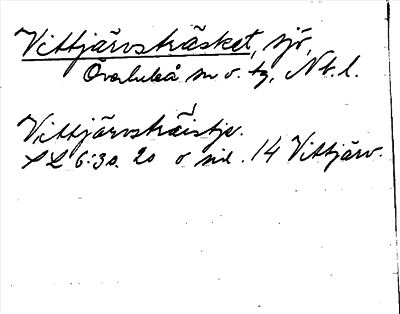 Vittjärvsträsket, sjö,
Överluleå sn o. tg, Nb. l.
Vittjärvsträistje.
SL 6:3 s. 20 o nil. 14 Vittjärv.